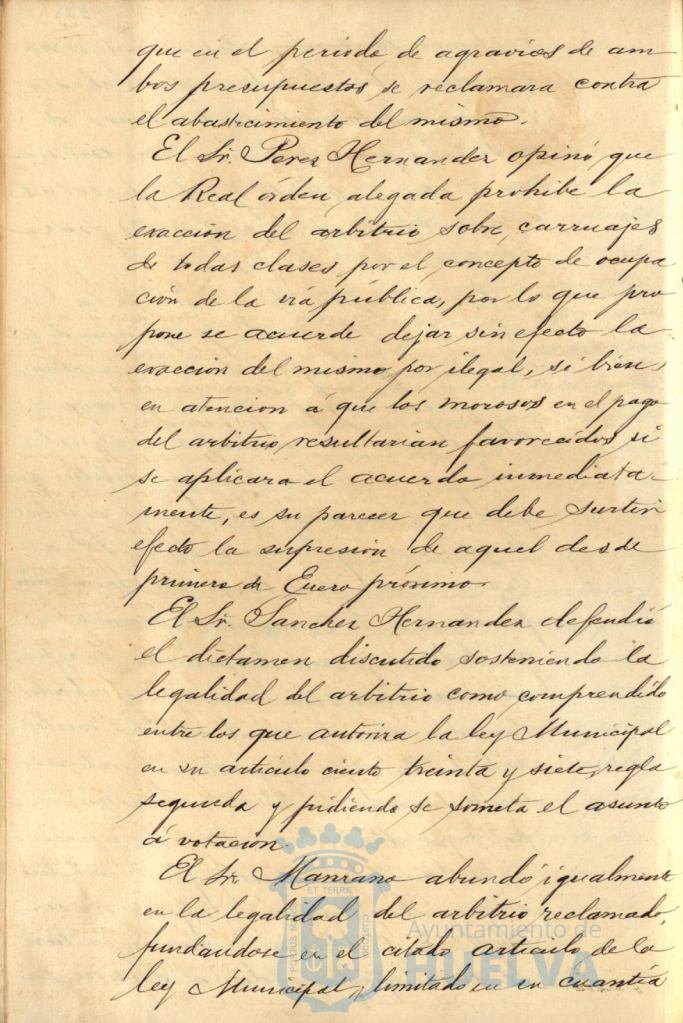 que en el periodo de agravios de am
bos presupuestos se reclamara contra
el abastecimiento del mismo.
El Sr. Perez Hernandez opinó que
la Real órden alegada prohibe la
exacción del arbitrio sobre carruajes
de todas clases por el concepto de ocupa
ción de la via pública, por lo que pro
pone se acuerde dejar sin efecto la
exaccion del mismo por ilegal, si bien,
en atencion á que los morosos en el pago
del arbitrio resultarian favorecidos si
se aplicara el acuerdo inmediata-
mente, es su parecer que debe surtir
efecto la supresión de aquel desde
primero de Enero próximo.
El Sr. Sanchez Hernandez defendió
el dictamen discutido sosteniendo la
legalidad del arbitrio como comprendido
entre los que autoriza la ley Municipal
en su articulo ciento treinta y siete, regla
segunda y pidiendo se someta el asunto
á votación.
El Sr. Manzano abundó igualmente
en la legalidad del arbitrio reclamado,
fundandose en el citado articulo de la
ley Municipal, limitado en su cuantía
ET TERRÆ
CUSTODIA
PORTUS MARIS
Ayuntamiento de
HUELVA